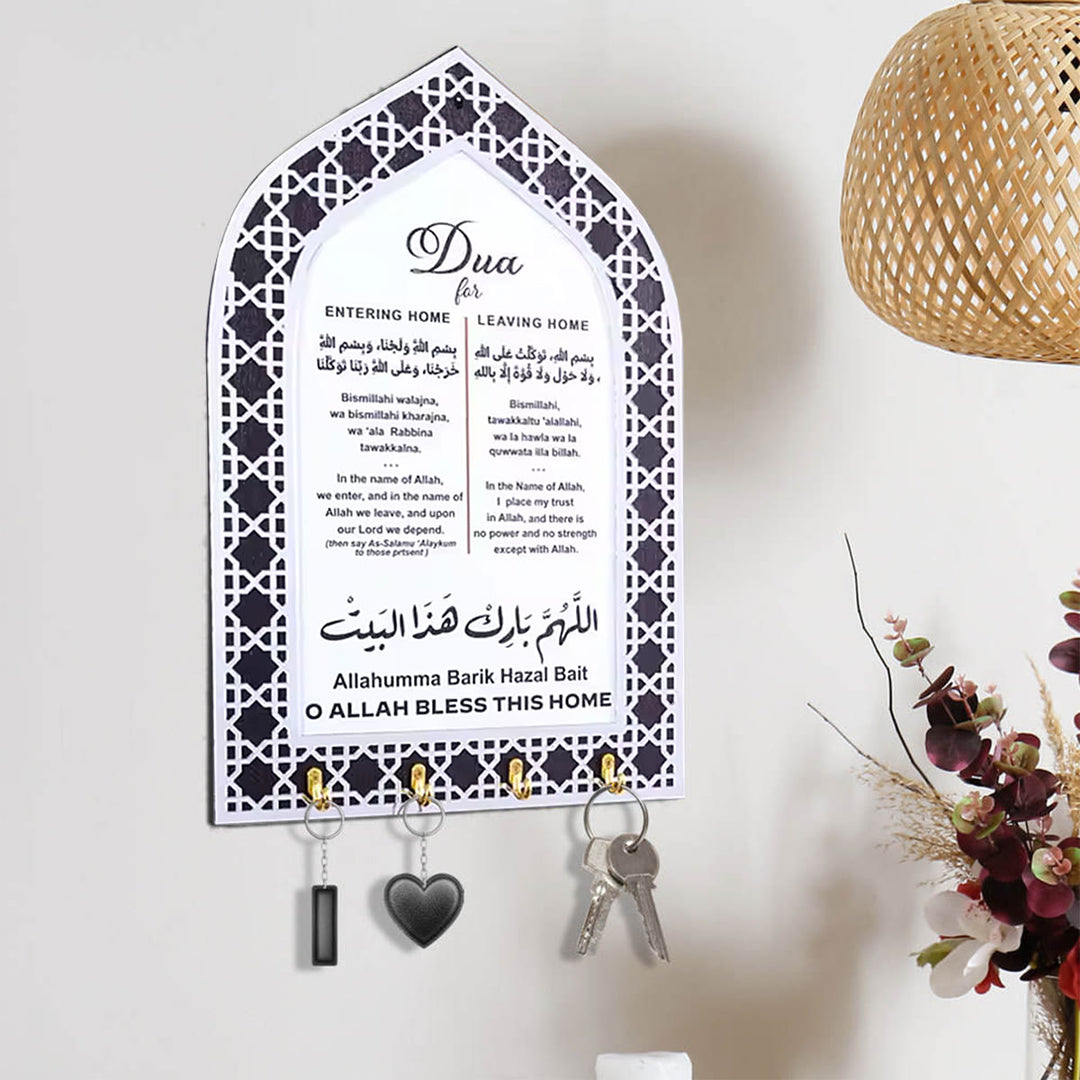 Dua
for
ENTERING HOME
بِسْمِ اللهِ وَلَجْنَا، وَبِسْمِ اللهِ
خَرَجْنَا، وَعَلَى اللهِ رَبِّنَا تَوَكَّلْنَا
Bismillahi walajna,
wa bismillahi kharajna,
wa 'ala Rabbina
tawakkalna.
...
In the name of Allah,
we enter, and in the name of
Allah we leave, and upon
our Lord we depend.
(then say As-Salamu 'Alaykum
to those prtsent )
LEAVING HOME
بِسْمِ اللهِ، تَوَكَّلْتُ عَلَى اللهِ
، وَلَا حَوْلَ وَلَا قُوَّةَ إِلَّا بِاللهِ
Bismillahi,
tawakkaltu 'alallahi,
wa la hawla wa la
quwwata illa billah.
...
In the Name of Allah,
I place my trust
in Allah, and there is
no power and no strength
except with Allah.
اللَّهُمَّ بَارِكْ هَذَا البَيتْ
Allahumma Barik Hazal Bait
O ALLAH BLESS THIS HOME